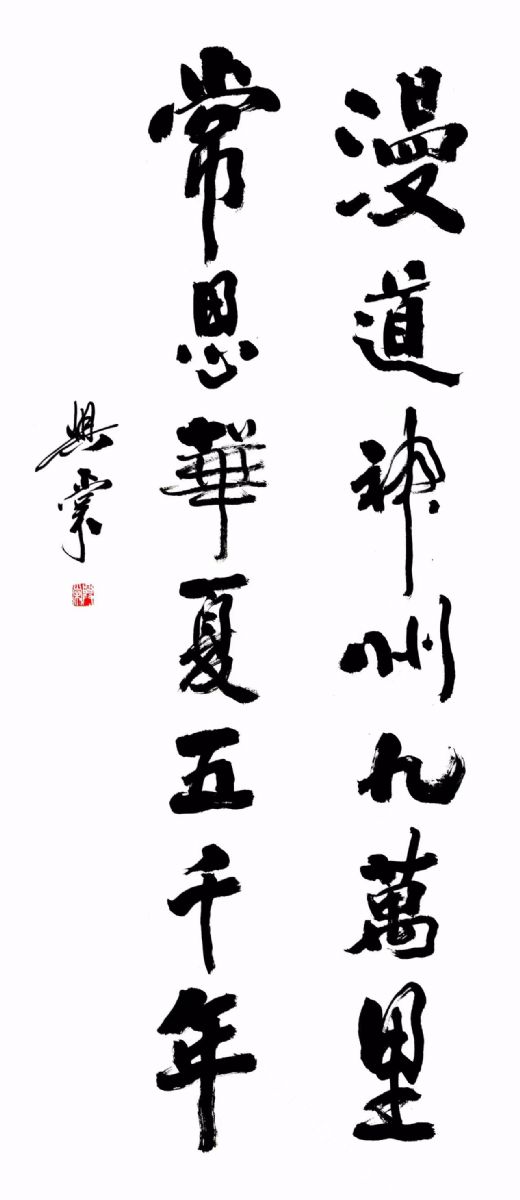 漫道神州九萬里
常思華夏五千年
興業